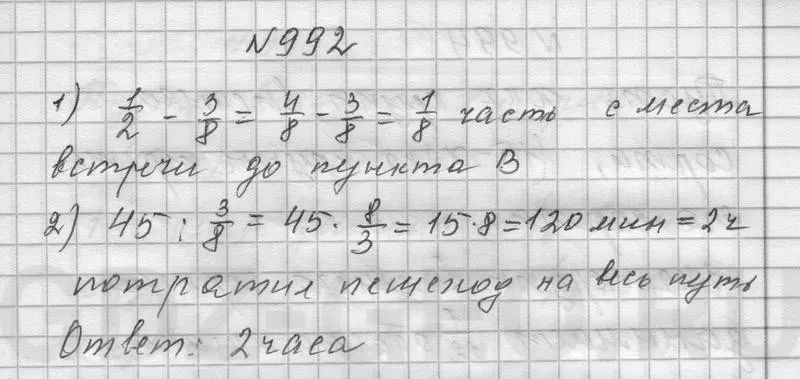 №992
1) 1/2 - 3/8 = 4/8 - 3/8 = 1/8 часть с места
встречи до пункта В
2) 45 : 3/8 = 45 · 8/3 = 15·8 = 120 мин = 2ч
потратил пешеход на весь путь
Ответ: 2 часа